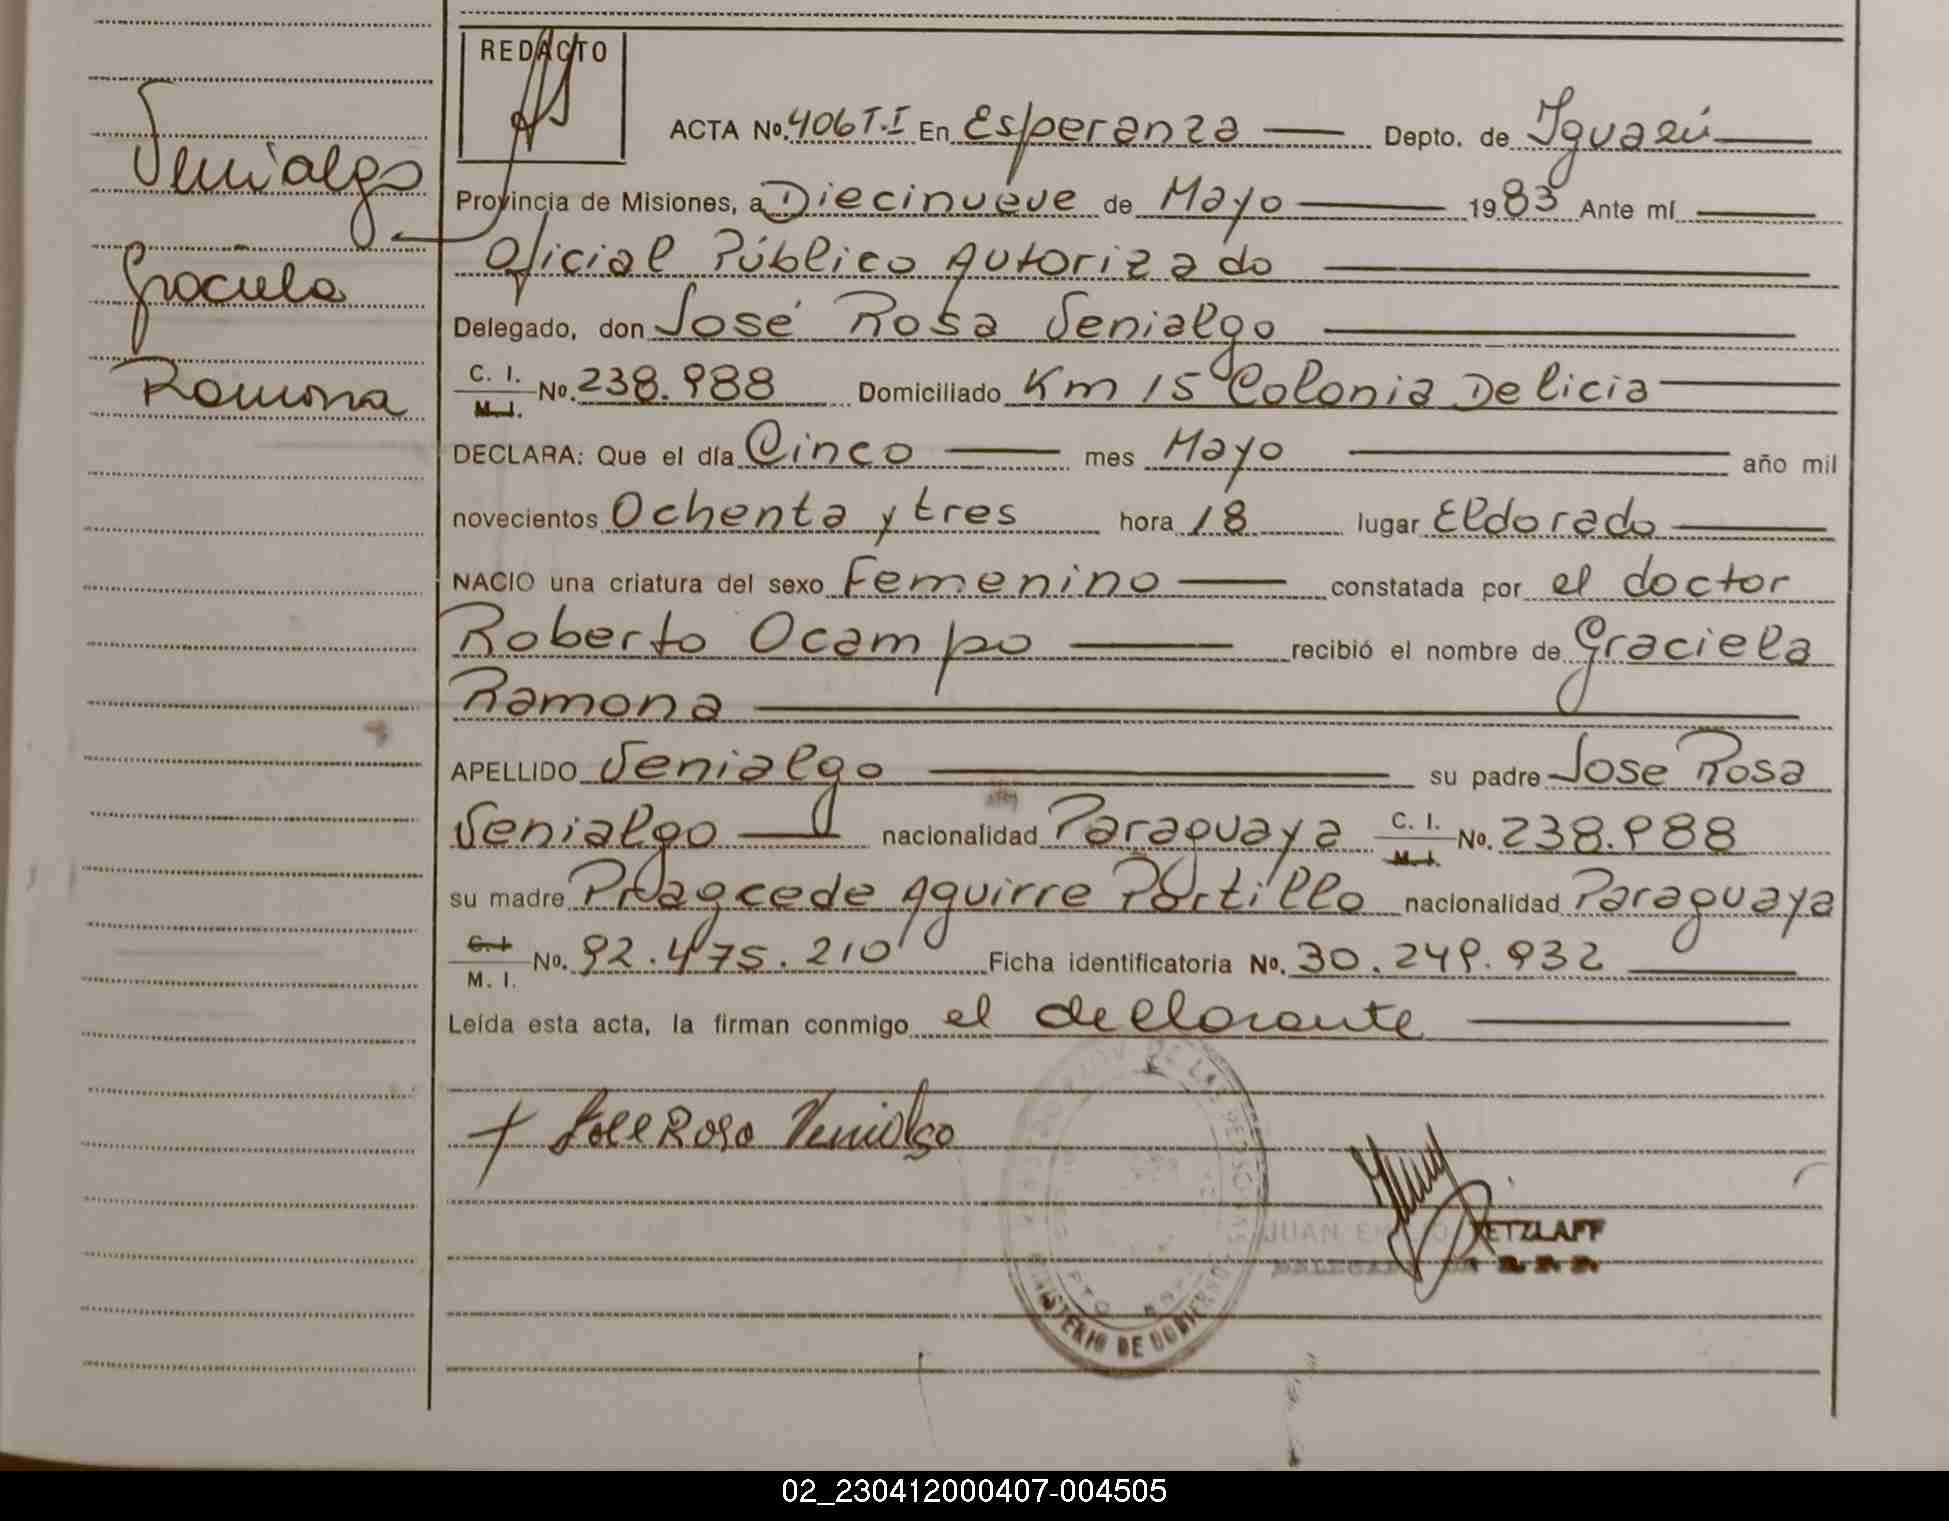 REDACTO
ACTA No. 406 T.I En Esperanza Depto. de Iguazú
Venialgo
Provincia de Misiones, a Diecinueve de Mayo 1983 Ante mí
Oficial Público Autorizado
Graciela
Delegado, don José Rosa Venialgo
Ramona
C. I. M. I. No. 238.988 Domiciliado Km 15 Colonia Delicia
DECLARA: Que el día Cinco mes Mayo año mil
novecientos Ochenta y tres hora 18 lugar Eldorado
NACIO una criatura del sexo Femenino constatada por el doctor
Roberto Ocampo recibió el nombre de Graciela
Ramona
APELLIDO Venialgo su padre Jose Rosa
Venialgo nacionalidad Paraguaya C. I. M. I. No. 238.988
su madre Aguirre Portillo nacionalidad Paraguaya
C. I. M. I. No. 92.475.210 Ficha identificatoria No. 30.249.932
Leída esta acta, la firman conmigo el declarante
Jose Rosa Venialgo
RETZLAFF
MINISTERIO DE GOBIERNO
02_230412000407-004505